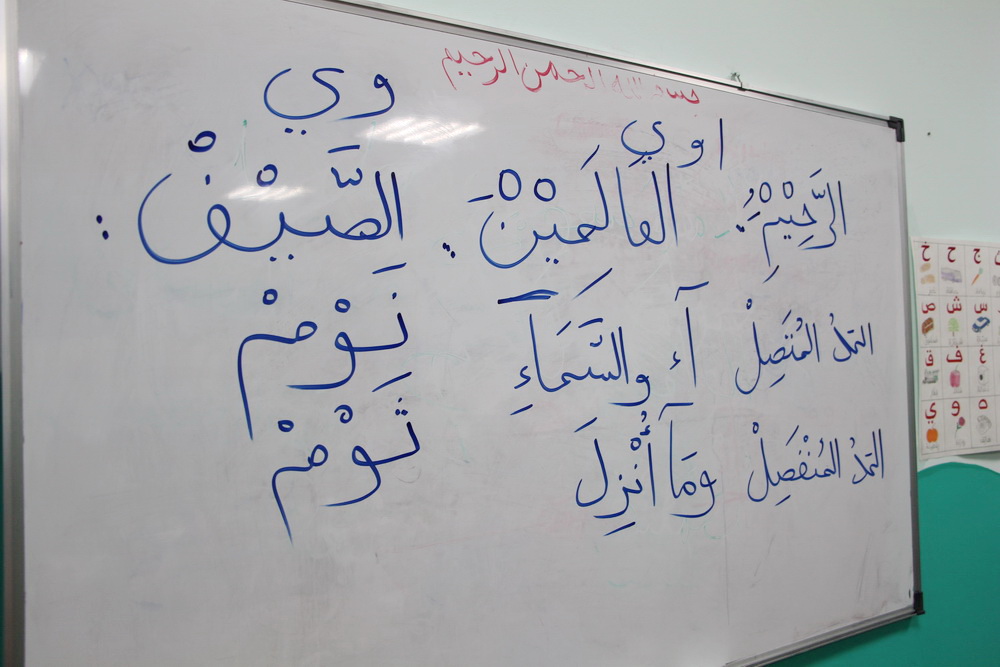 بسم الله الرحمن الرحيم
ا و ي وي
الرَّحِيْمِ : العَالَمِيْنَ : الصَّيْفْ :
المَدُ المُتَصِلْ آء والسَّمَاءِ نَوْمْ
المَدُ المُنْفَصِلْ وَمَآ أُنْزِلَ ثَوْمْ
خ ح ج
ص ش س
ق ف غ
ي و ه